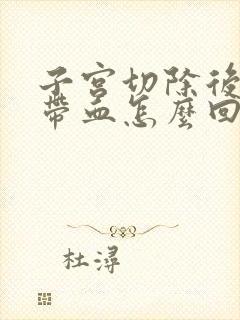 子宮切除後
帶血怎麼回
杜潯